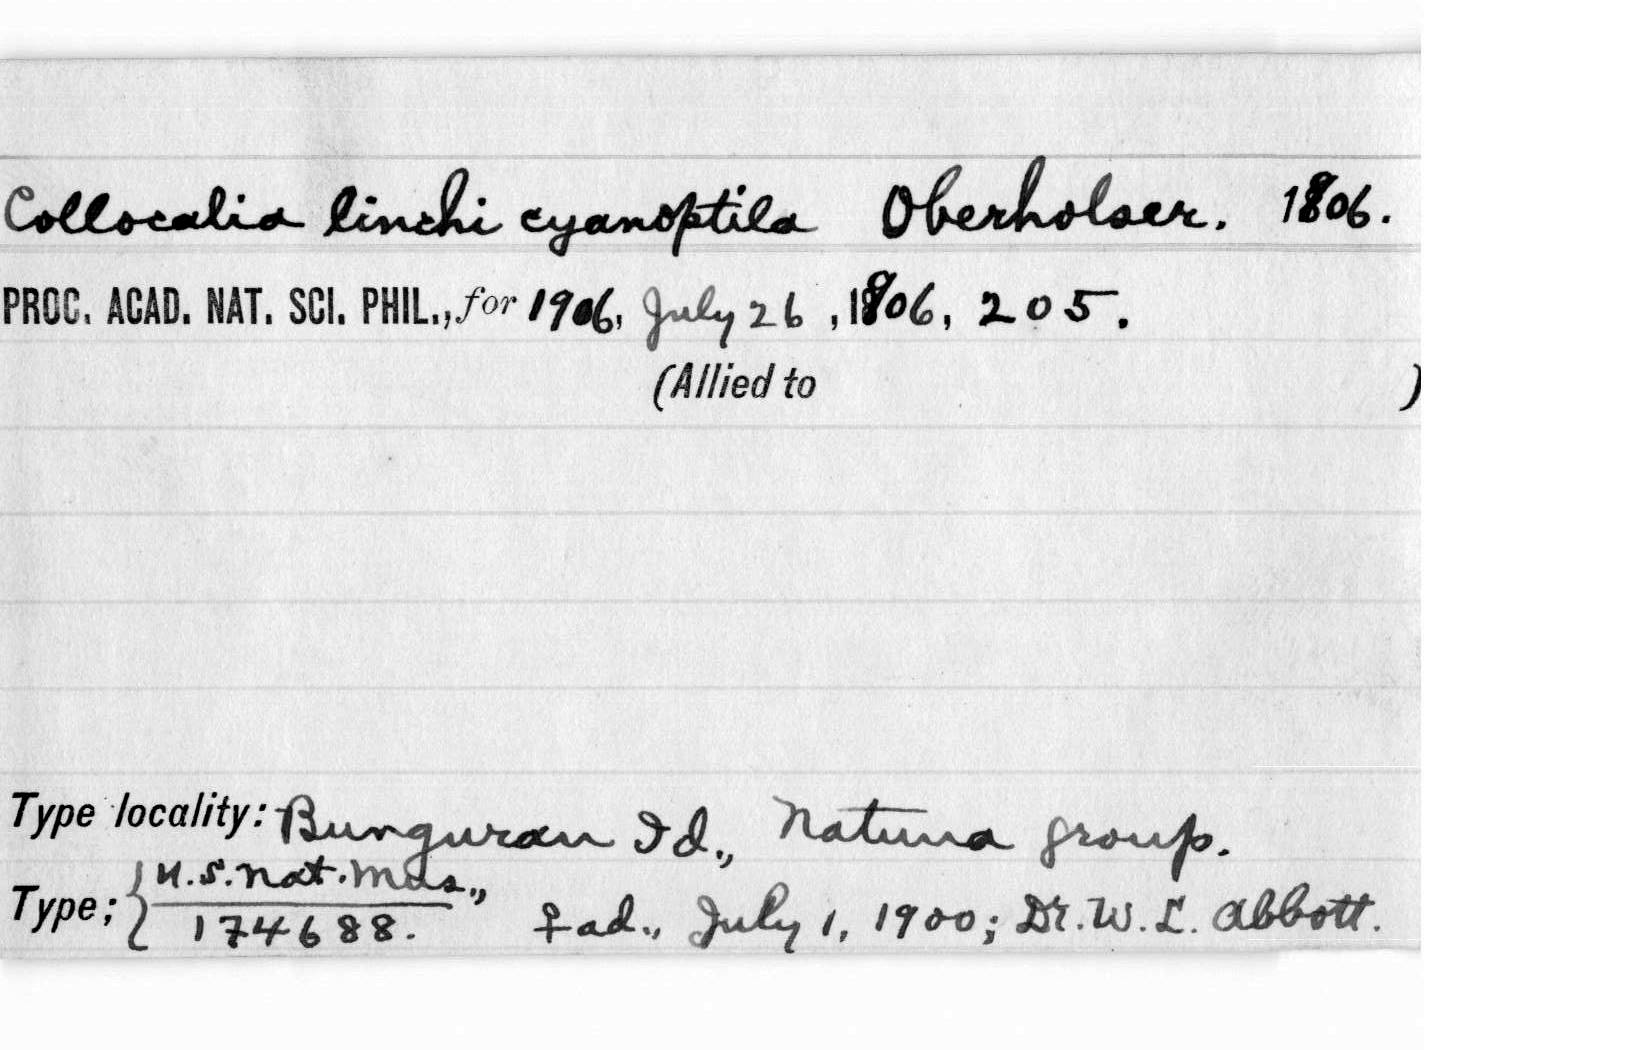 Collocalia linchi cyanoptila Oberholser. 1806.
PROC. ACAD. NAT. SCI. PHIL., for 1906, July 26, 1806, 205.
(Allied to )
Type locality: Bunguran Id., Natuna group.
U.S. Nat. Mus.,
Type; { 174688. ♀ ad., July 1, 1900; Dr. W. L. Abbott.